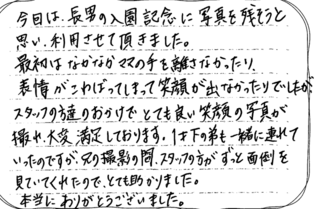 今日は、長男の入園記念に写真を残そうと
思い、利用させて頂きました。
最初はなかなかママの手を離さなかったり、
表情がこわばってしまって笑顔が出なかったりでしたが、
スタッフの方達のおかげでとても良い笑顔の写真が
撮れ、大変満足しております。1才下の弟も一緒に連れて
いったのですが、兄の撮影の間、スタッフの方がずっと面倒を
見ていてくれたので、とても助かりました。
本当にありがとうございました。